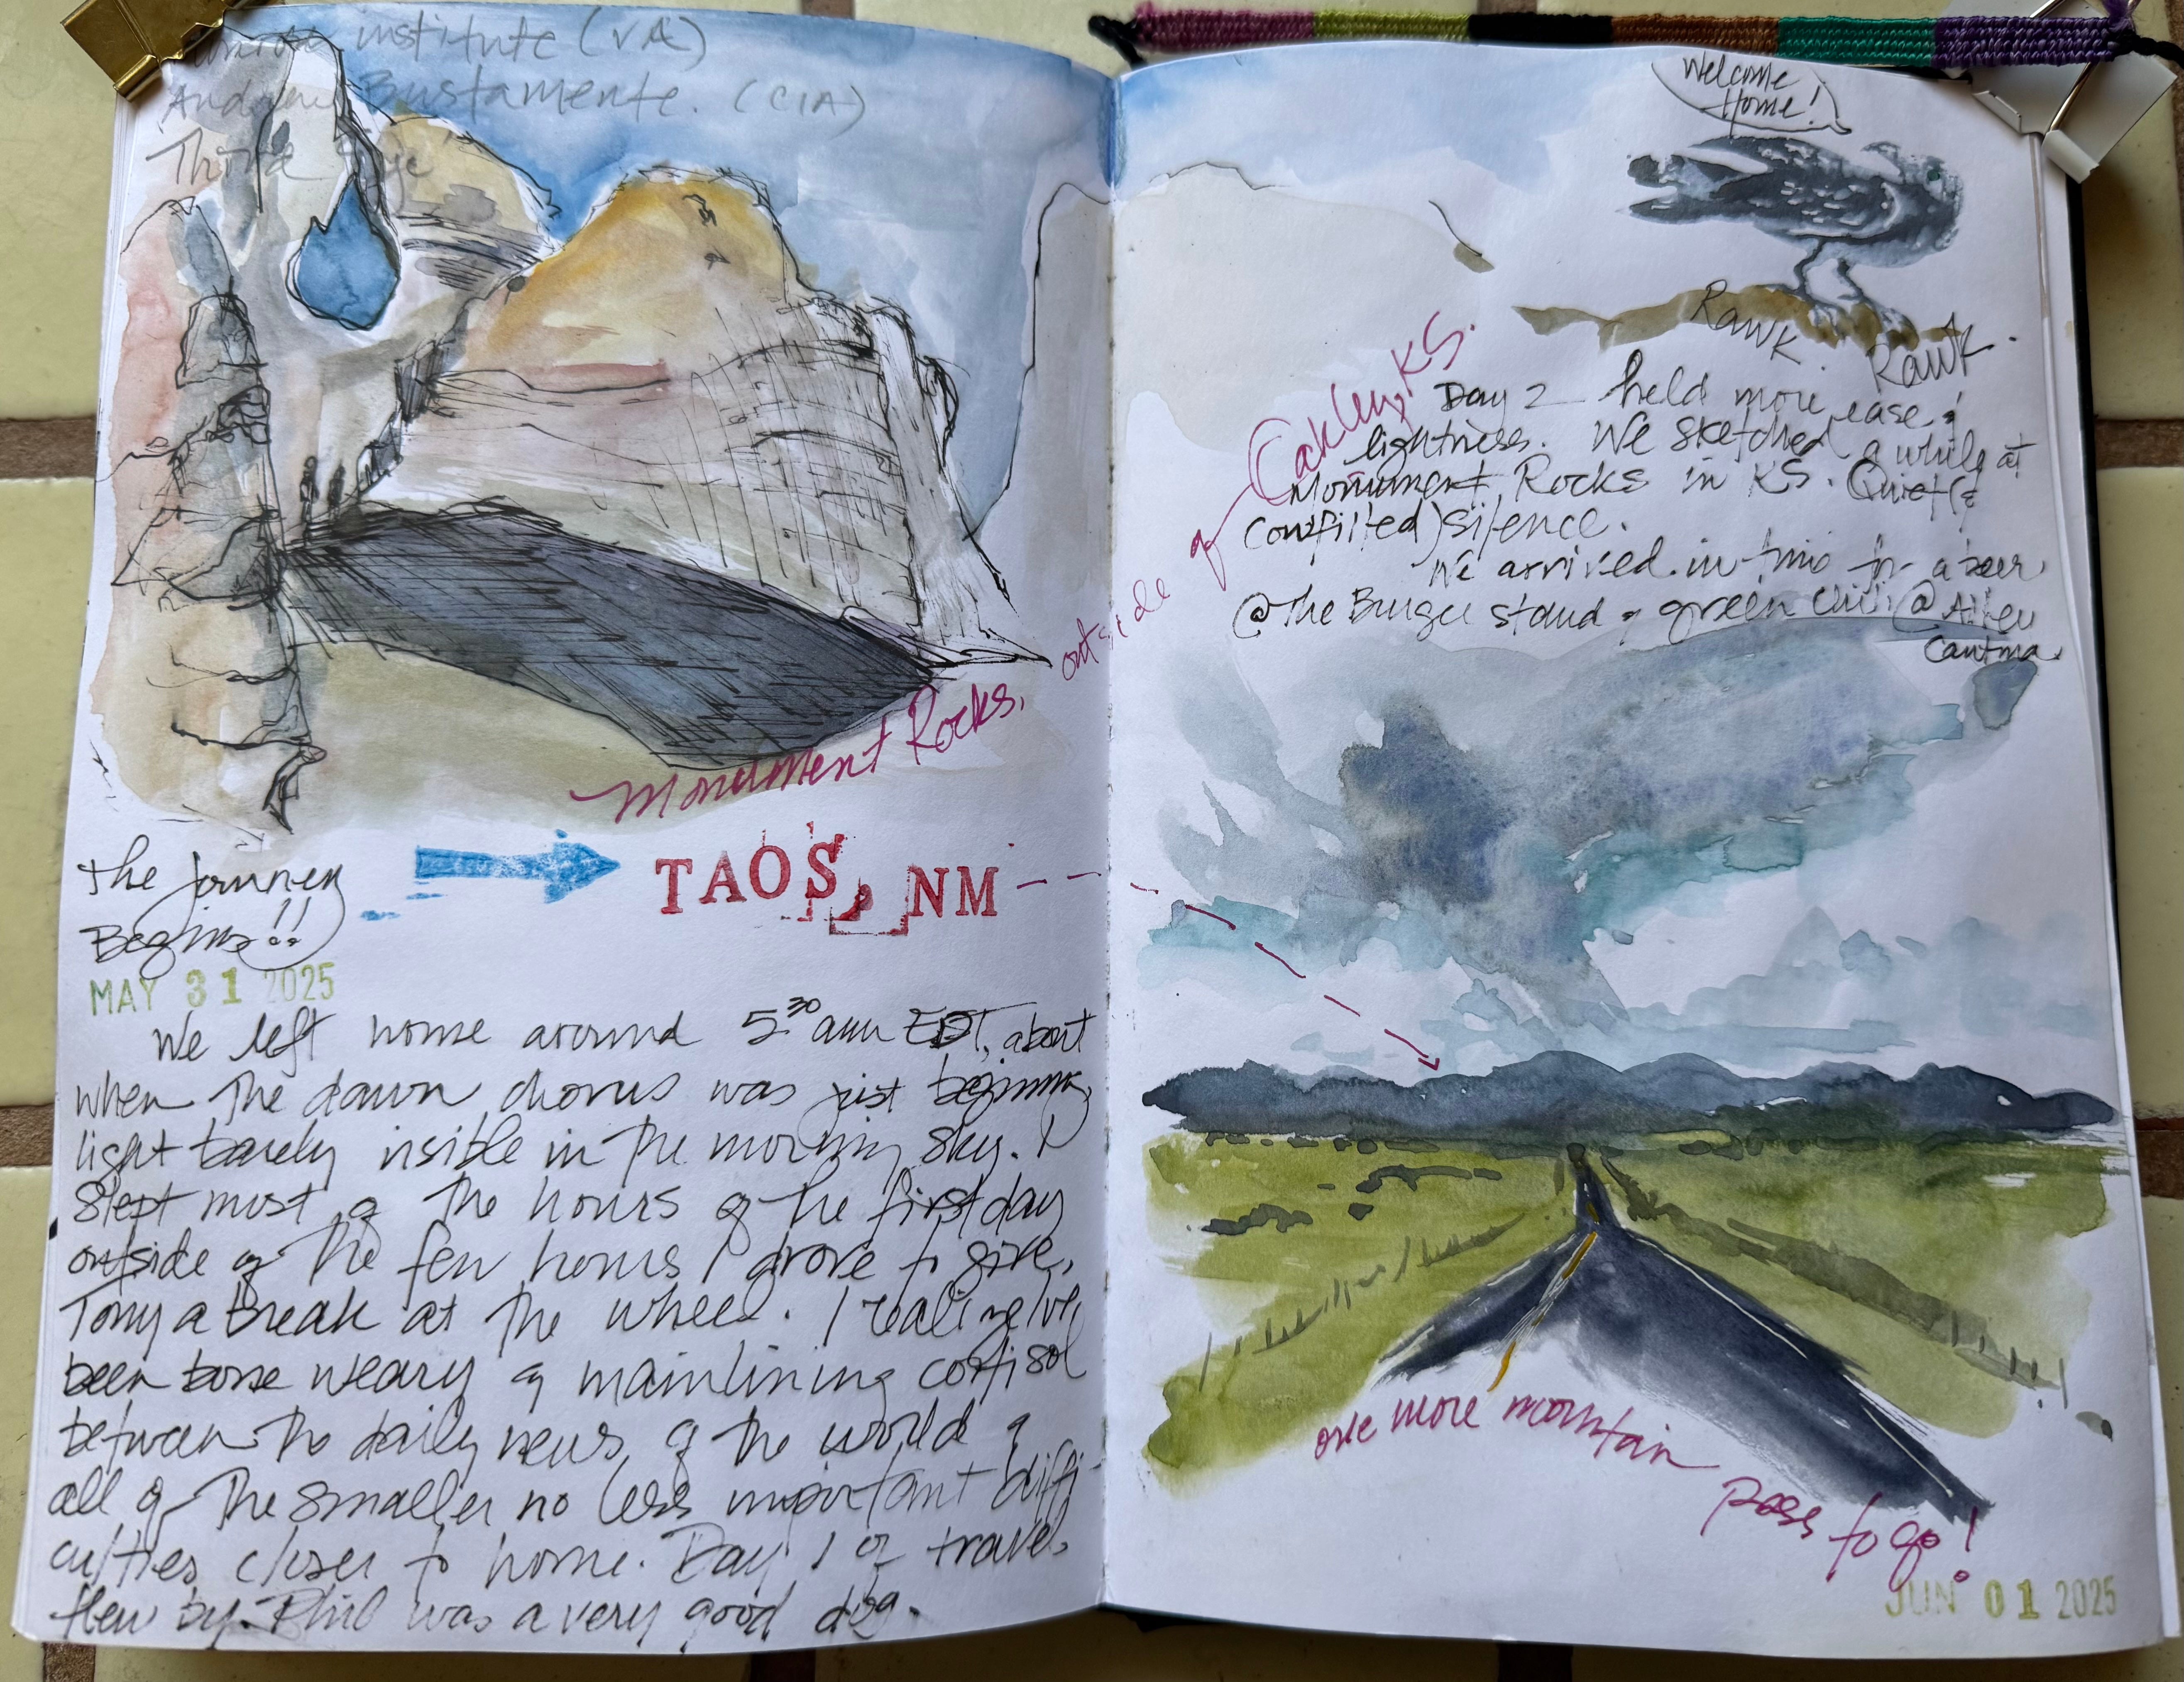 institute (VA)
Bustamente. (CIA)
Third eye
Monument Rocks, outside of Oakley, KS.
The Journey
Begins!!
TAOS, NM
MAY 31 2025
We left home around 5:30 am EDT, about
when the dawn chorus was just beginning,
light barely visible in the morning sky. I
slept most of the hours of the first day
outside of the few hours I drove to give
Tony a break at the wheel. I realize I've
been bone weary of mainlining cortisol
between the daily news of the world &
all of the smaller no less important diffi-
culties closer to home. Day 1 of travel
flew by. Phil was a very good dog.
Welcome
Home!
Rawk
Rawk.
Day 2 held more ease &
lightness. We sketched a while at
Monument Rocks in KS. Quiet (&
) silence.
We arrived in time for a beer
@ The Burger Stand & green chili @ Alley
Cantina.
one more mountain
pass to go!
JUN 01 2025